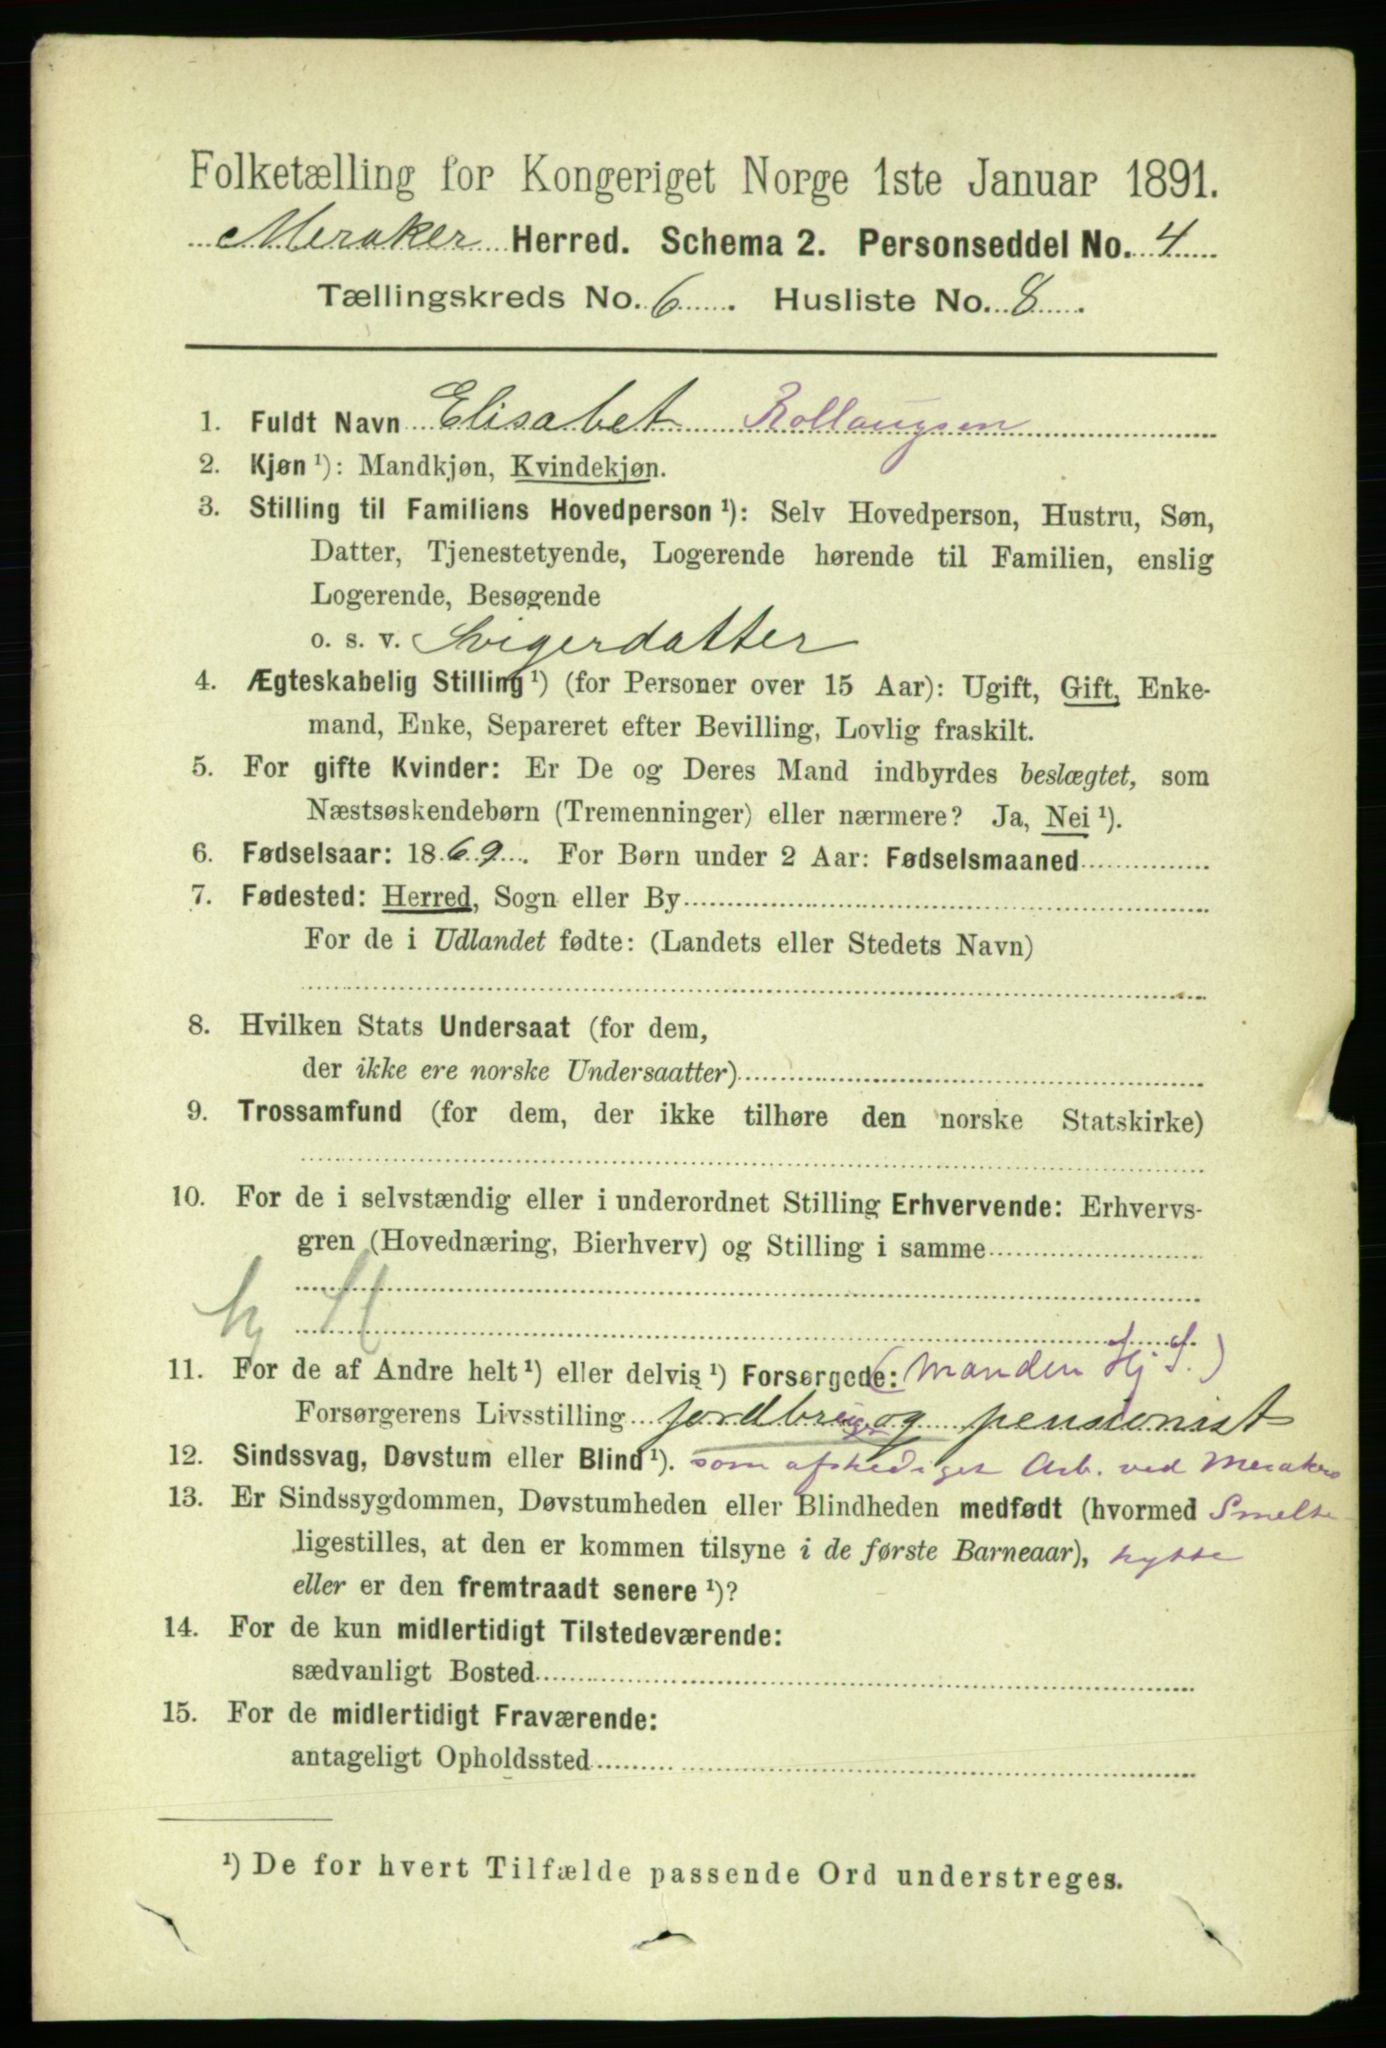 Folketælling for Kongeriget Norge 1ste Januar 1891.
Meraker Herred. Schema 2. Personseddel No. 4
Tællingskreds No. 6. Husliste No. 8.
1. Fuldt Navn Elisabet Rollaugsen
2. Kjøn ¹): Mandkjøn, Kvindekjøn.
3. Stilling til Familiens Hovedperson ¹): Selv Hovedperson, Hustru, Søn,
Datter, Tjenestetyende, Logerende hørende til Familien, enslig
Logerende, Besøgende
o. s. v. Svigerdatter
4. Ægteskabelig Stilling ¹) (for Personer over 15 Aar): Ugift, Gift, Enke-
mand, Enke, Separeret efter Bevilling, Lovlig fraskilt.
5. For gifte Kvinder: Er De og Deres Mand indbyrdes beslægtet, som
Næstsøskendebørn (Tremenninger) eller nærmere? Ja, Nei ¹).
6. Fødselsaar: 1869. For Børn under 2 Aar: Fødselsmaaned
7. Fødested: Herred, Sogn eller By
For de i Udlandet fødte: (Landets eller Stedets Navn)
8. Hvilken Stats Undersaat (for dem,
der ikke ere norske Undersaatter)
9. Trossamfund (for dem, der ikke tilhøre den norske Statskirke)
10. For de i selvstændig eller i underordnet Stilling Erhvervende: Erhvervs-
gren (Hovednæring, Bierhverv) og Stilling i samme
11. For de af Andre helt ¹) eller delvis ¹) Forsørgede: (Manden Hj S.)
Forsørgerens Livsstilling jordbrug og pensionist
12. Sindssvag, Døvstum eller Blind ¹). som afskediget Arb. ved Merakers
13. Er Sindssygdommen, Døvstumheden eller Blindheden medfødt (hvormed Smelte
ligestilles, at den er kommen tilsyne i de første Barneaar), hytte
eller er den fremtraadt senere ¹)?
14. For de kun midlertidigt Tilstedeværende:
sædvanligt Bosted
15. For de midlertidigt Fraværende:
antageligt Opholdssted
¹) De for hvert Tilfælde passende Ord understreges.